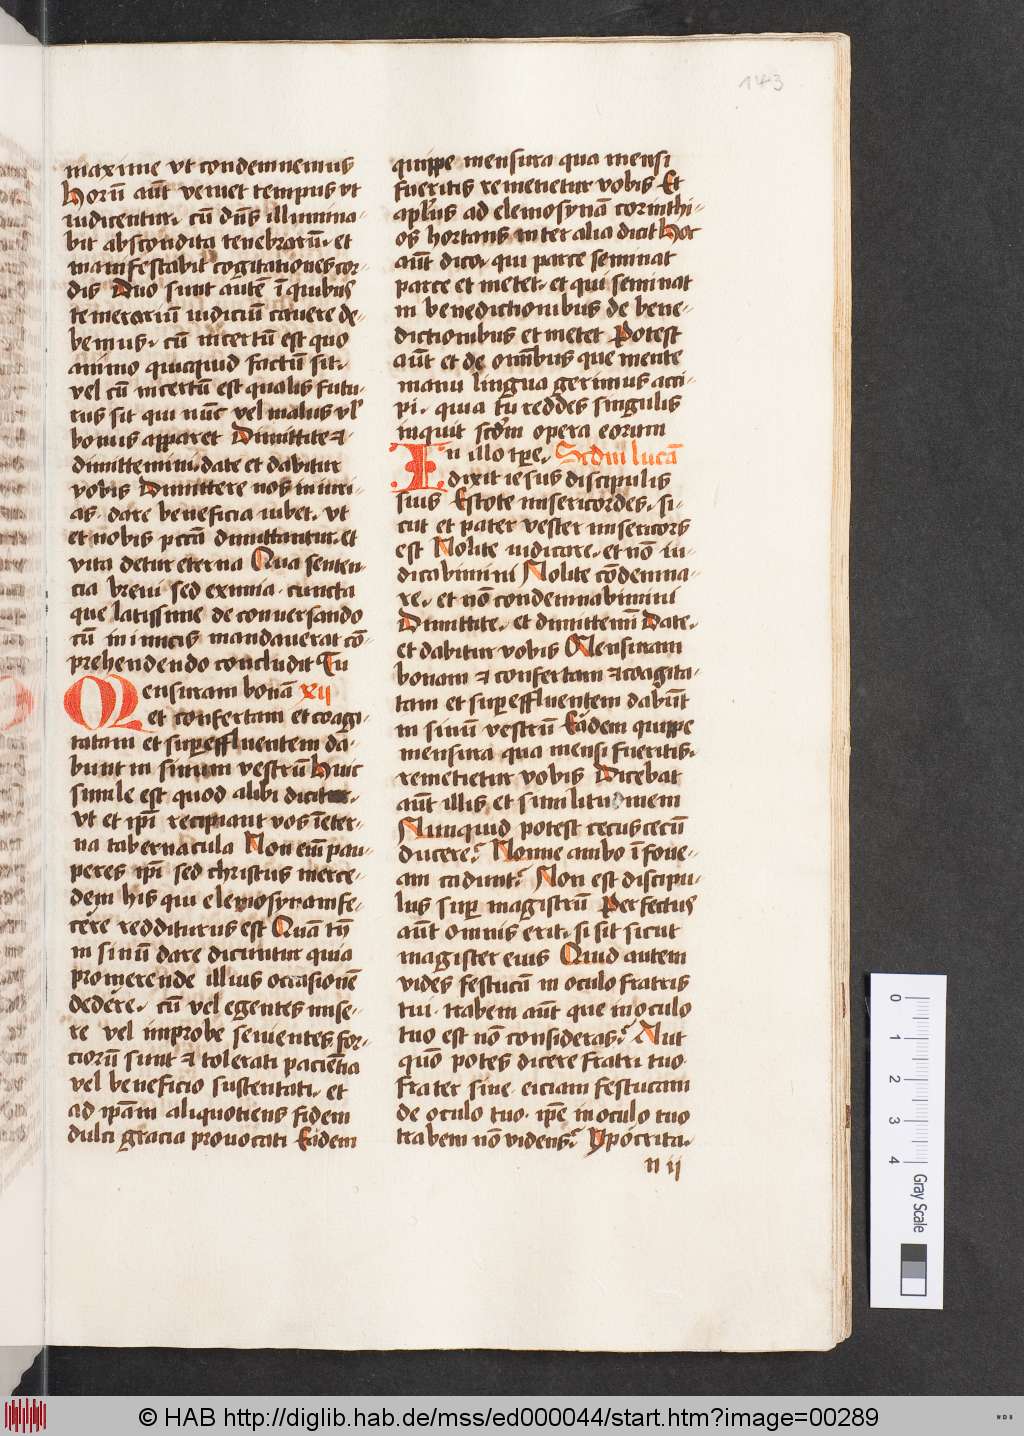 143
maxime vt condemnemus
Horū aūt veniet tempus vt
iudicentur. cū dn̄s illumina-
bit abscondita tenebrarū. et
manifestabit cogitationes cor-
dis Duo sunt autē ī quibus
temerariū iudiciū cauere de-
bemus. cū incertū est quo
animo quicquid factū sit.
vel cū incertū est qualis futu-
rus sit qui nūc vel malus vl'
bonus apparet Dimittite ⁊
dimittemini. date et dabitur
vobis Dimittere nos iniuri-
as. dare beneficia iubet. vt
et nobis pctā dimittantur. et
vita detur eterna Qua senten-
cia breui sed eximia. cuncta
que latissime de conuersando
cū inimicis mandauerat cō-
prehendendo concludit Tu
Mensuram bonā xii
et confertam et coagi-
tatam et suꝑeffluentem da-
bunt in sinum vestrū Huic
simile est quod alibi dicit
Vt et ipi recipiant vos ī eter-
na tabernacula Non eīm pau-
peres ipi sed christus merce-
dem his qui elemosynam fe-
cere redditurus est Quā tn̄
in sinū dare dicuntur quia
promerende illius occasionē
dedere. cū vel egentes mise-
re vel improbe seuientes for-
ciorū sunt ⁊ tolerati paciētia
vel beneficio sustentati. et
ad ipām aliquotiens fidem
dulci gracia prouocati Eādem
quippe mensura qua mensi
fueritis remetietur vobis Et
apl'us ad elemosynā corinthi-
os hortans inter alia dicit Hoc
aūt dico. qui parce seminat
parce et metet. et qui seminat
in benedictionibus de bene-
dictionibus et metet Potest
aūt et de om̄ibus que mente
manu lingua gerimus acci-
pi. quia tu reddes singulis
inquit scdm opera eorum
In illo tꝑe. Scdm lucā
dixit iesus discipulis
suis Estote misericordes. si-
cut et pater vester misericors
est Nolite iudicare. et nō iu-
dicabimini Nolite cōdemna-
re. et nō condemnabimini
Dimittite. et dimittemī Date.
et dabitur vobis Mensuram
bonam ⁊ confertam ⁊ coagita-
tam et suꝑeffluentem dabūt
in sinū vestrū Eādem quippe
mensura qua mensi fueritis.
remetietur vobis Dicebat
aūt illis et similitudinem
Nunquid potest cecus cecū
ducere? Nonne ambo ī foue-
am cadunt? Non est discipu-
lus suꝑ magistrū Perfectus
aūt omnis erit. si sit sicut
magister eius Quid autem
vides festucā in oculo fratris
tui. trabem aūt que in oculo
tuo est nō consideras? Aut
quō potes dicere fratri tuo.
frater sine. eiciam festucam
de oculo tuo. ipe in oculo tuo
trabem nō videns? Ypocrita.
n ij
0 1 2 3 4
Gray Scale
© HAB http://diglib.hab.de/mss/ed000044/start.htm?image=00289